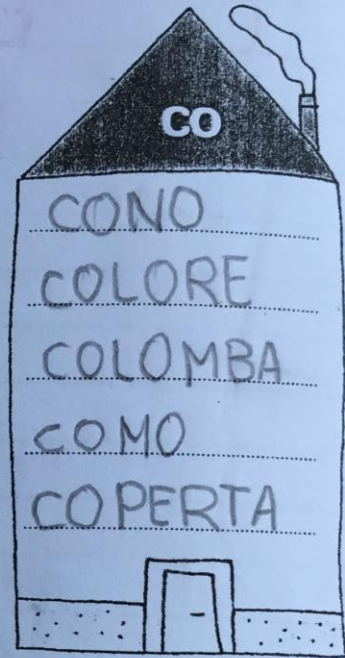 CO
CONO
COLORE
COLOMBA
COMO
COPERTA